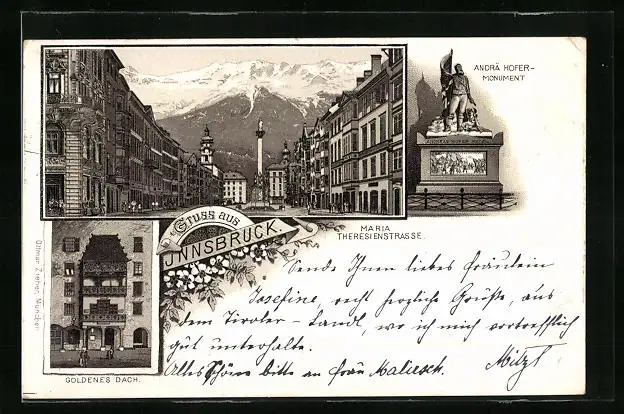 ANDRÄ HOFER-
MONUMENT
Gruss aus
INNSBRUCK.
MARIA
THERESIENSTRASSE.
GOLDENES DACH.
Ottmar Zieher, München
Sende Ihnen liebes Fräulein
Josefine, recht herzliche Grüße, aus
dem Tiroler-Landl, wo ich mich vortrefflich
gut unterhalte.
Alles Schöne bitte an Frau
Mitzl